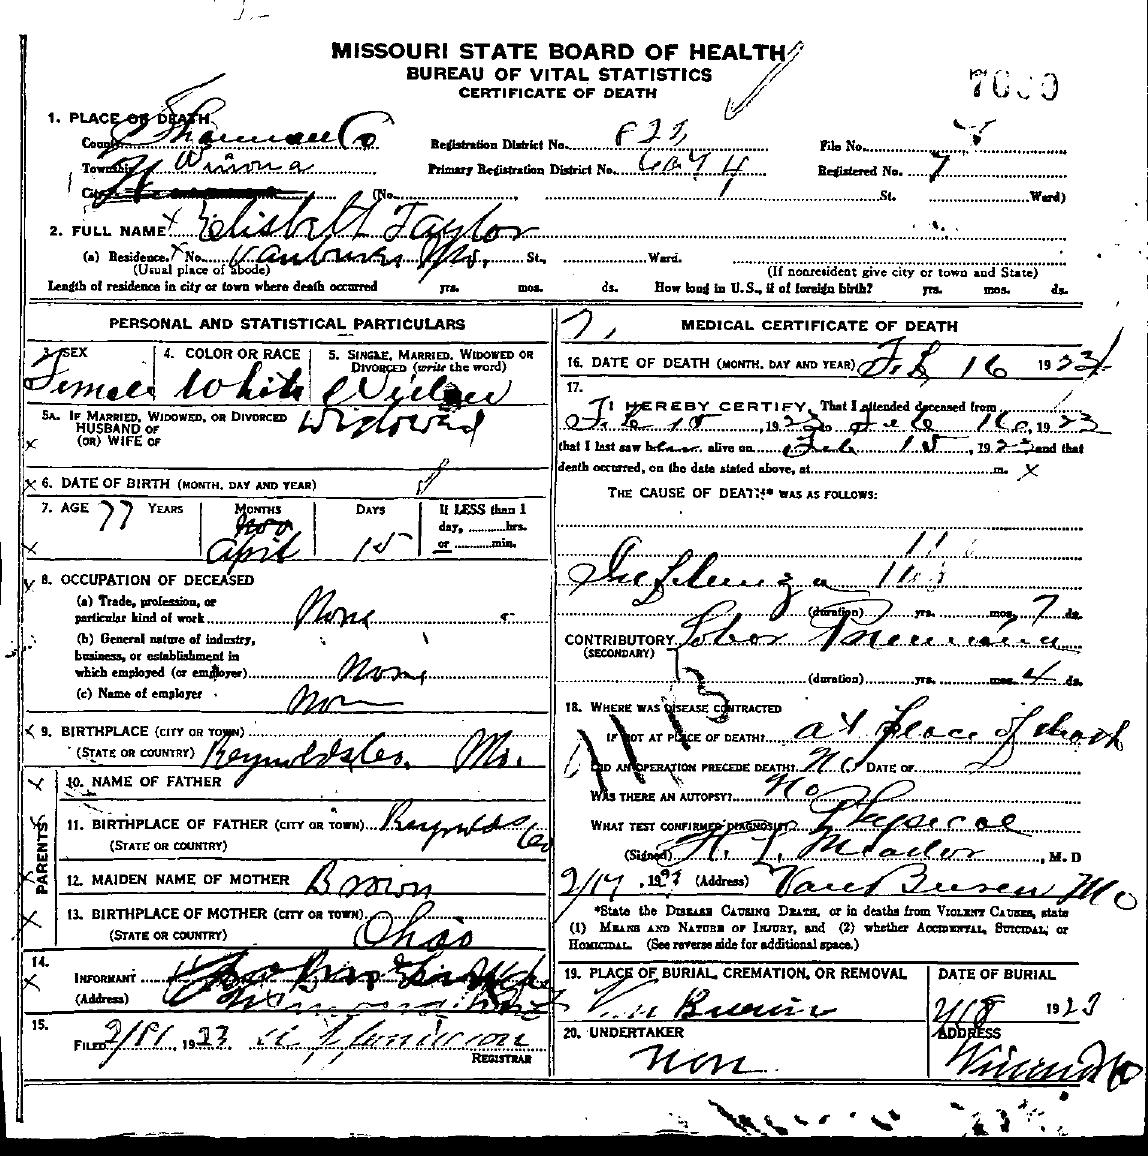 MISSOURI STATE BOARD OF HEALTH
BUREAU OF VITAL STATISTICS
CERTIFICATE OF DEATH
1. PLACE OF DEATH
County Shannon Co Registration District No. File No.
Township Winona Primary Registration District No. Registered No. 7
City (No. St. Ward)
2. FULL NAME Elisbett Taylor
(a) Residence. No. Vanburen Mo. St., Ward.
(Usual place of abode) (If nonresident give city or town and State)
Length of residence in city or town where death occurred yrs. mos. ds. How long in U.S., if of foreign birth? yrs. mos. ds.
PERSONAL AND STATISTICAL PARTICULARS
3. SEX 4. COLOR OR RACE 5. SINGLE, MARRIED, WIDOWED OR
DIVORCED (write the word)
Female White
5A. IF MARRIED, WIDOWED, OR DIVORCED Widowed
HUSBAND OF
(OR) WIFE OF
6. DATE OF BIRTH (MONTH, DAY AND YEAR)
7. AGE 77 YEARS MONTHS DAYS If LESS than 1
day, hrs.
April 15 or min.
8. OCCUPATION OF DECEASED
(a) Trade, profession, or
particular kind of work None
(b) General nature of industry,
business, or establishment in
which employed (or employer) None
(c) Name of employer Non
9. BIRTHPLACE (CITY OR TOWN)
(STATE OR COUNTRY) Reynolds Co. Mo.
PARENTS
10. NAME OF FATHER
11. BIRTHPLACE OF FATHER (CITY OR TOWN) Reynolds Co
(STATE OR COUNTRY)
12. MAIDEN NAME OF MOTHER Brown
13. BIRTHPLACE OF MOTHER (CITY OR TOWN)
(STATE OR COUNTRY) Ohio
14.
INFORMANT
(Address)
15.
FILED 1923
REGISTRAR
MEDICAL CERTIFICATE OF DEATH
16. DATE OF DEATH (MONTH, DAY AND YEAR) Feb 16 1923
17.
I HEREBY CERTIFY, That I attended deceased from
Feb 15, 1923 to Feb 16, 1923
that I last saw alive on Feb 15, 1923 and that
death occurred, on the date stated above, at m.
THE CAUSE OF DEATH* WAS AS FOLLOWS:
Influenza
(duration) yrs. mos. 7 ds.
CONTRIBUTORY Lobor Pneumonia
(SECONDARY)
(duration) yrs. mos. 4 ds.
18. WHERE WAS DISEASE CONTRACTED
IF NOT AT PLACE OF DEATH? at place of death
DID AN OPERATION PRECEDE DEATH? No DATE OF
WAS THERE AN AUTOPSY? No
WHAT TEST CONFIRMED DIAGNOSIS? Physical
(Signed) H. L. Meador, M. D
2/17, 1923 (Address) Van Buren Mo
*State the DISEASE CAUSING DEATH, or in deaths from VIOLENT CAUSES, state
(1) MEANS AND NATURE OF INJURY, and (2) whether ACCIDENTAL, SUICIDAL, or
HOMICIDAL. (See reverse side for additional space.)
19. PLACE OF BURIAL, CREMATION, OR REMOVAL DATE OF BURIAL
Van Buren 2/18 1923
20. UNDERTAKER ADDRESS
non